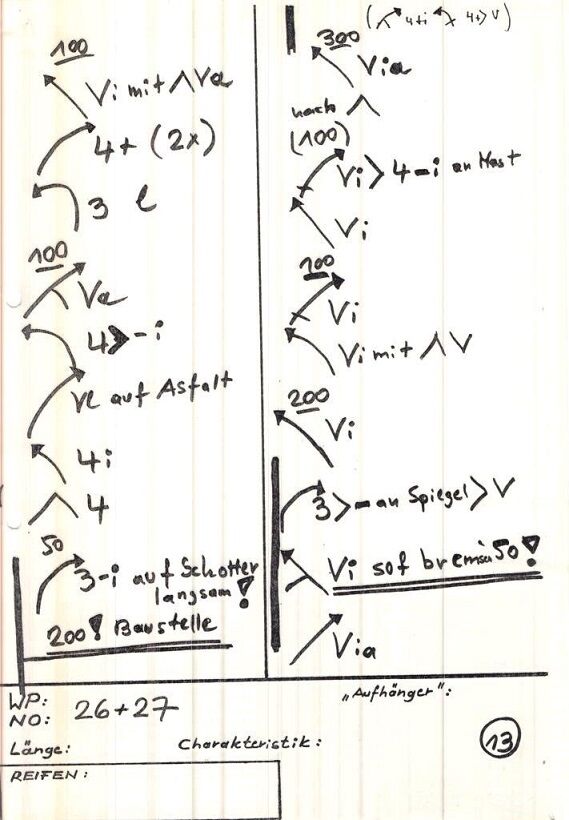 100
Vi mit Λ Va
4+ (2x)
3 l
100
Va
4>-i
Vl auf Asfalt
4i
4
50
3-i auf Schotter
langsam!
200! Baustelle
(4+i 4>V)
300
Via
nach Λ
(100)
Vi > 4-i an Mast
Vi
100
Vi
Vi mit Λ V
200
Vi
3>- an Spiegel > V
Vi sof 50!
Via
WP: 26+27
NO:
Länge:
Charakteristik:
„Aufhänger":
13
REIFEN: